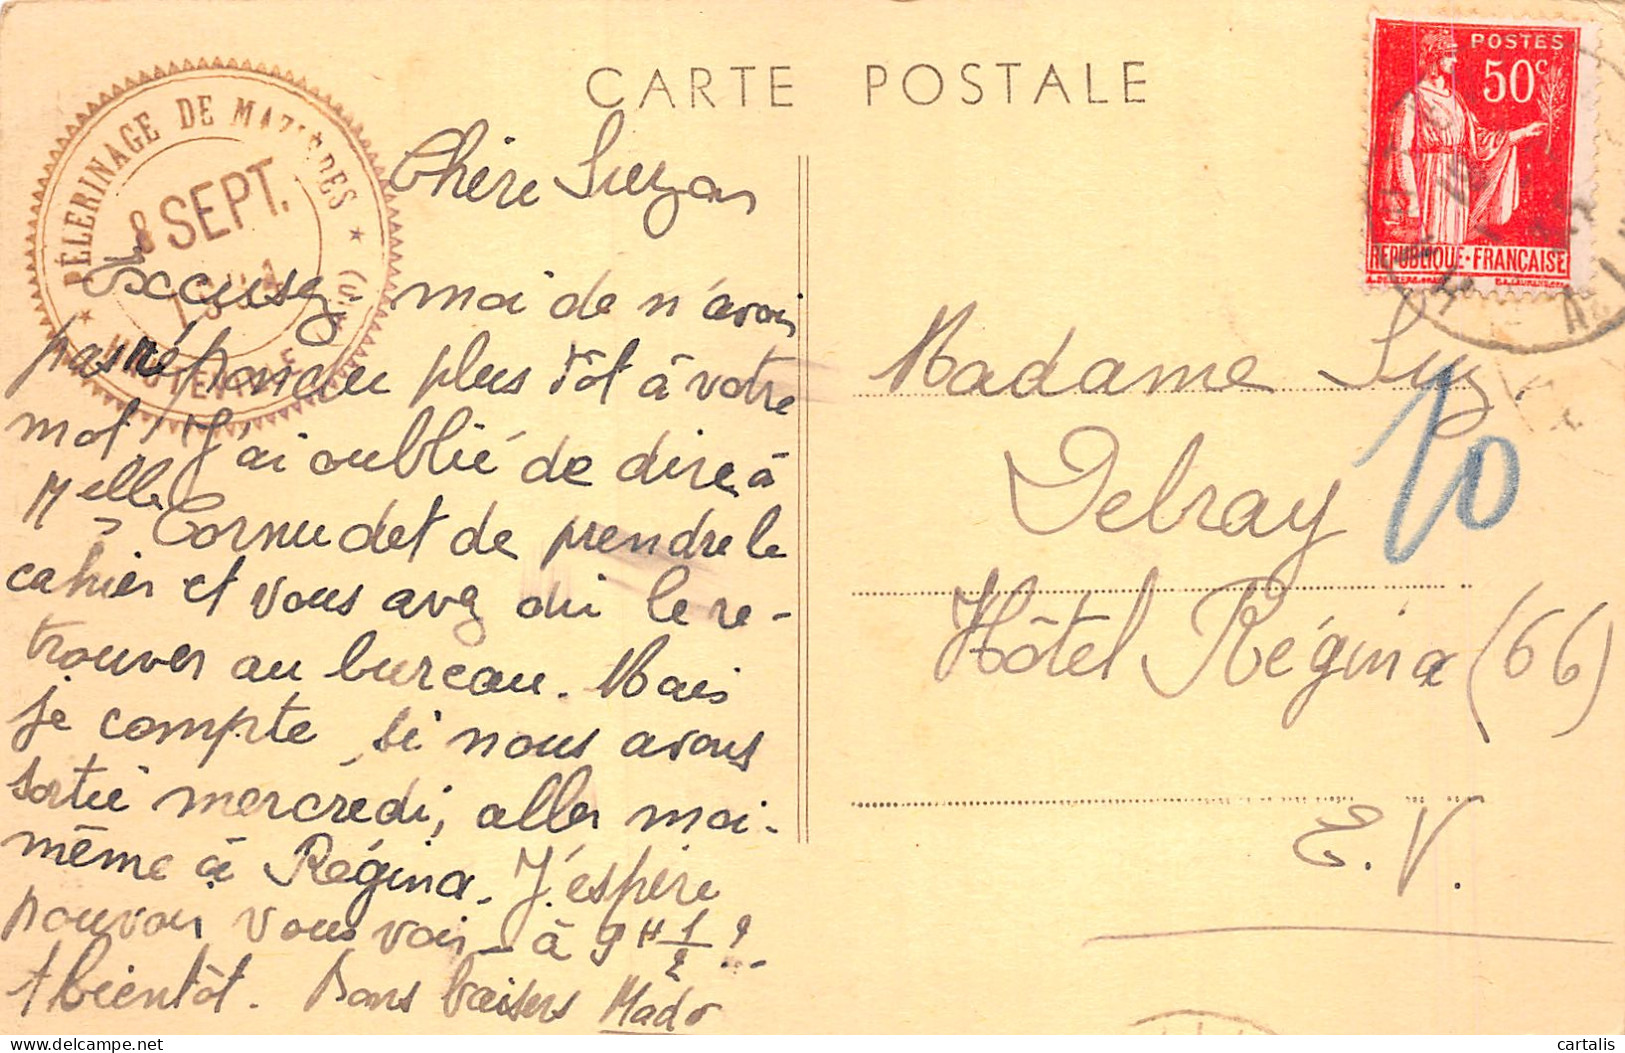 CARTE POSTALE
PÈLERINAGE DE MAZIÈRES
8 SEPT.
POSTES
50c
REPUBLIQUE·FRANCAISE
Chère Suzon
Excusez-moi de n'avoir
pas répondu plus tôt à votre
mot. J'ai oublié de dire à
Melle Cornudet de prendre le
cahier et vous avez dû le re-
trouver au bureau. Mais
je compte, si nous avons
sortie mercrédi, aller moi-
même à Régina. J'espère
pouvoir vous voir - à 9H 1/2 ?...
A bientôt. Bons baisers Mado
Madame Suz
Delray
10
Hôtel Régina (66)
E.V.
delcampe.net
cartalis